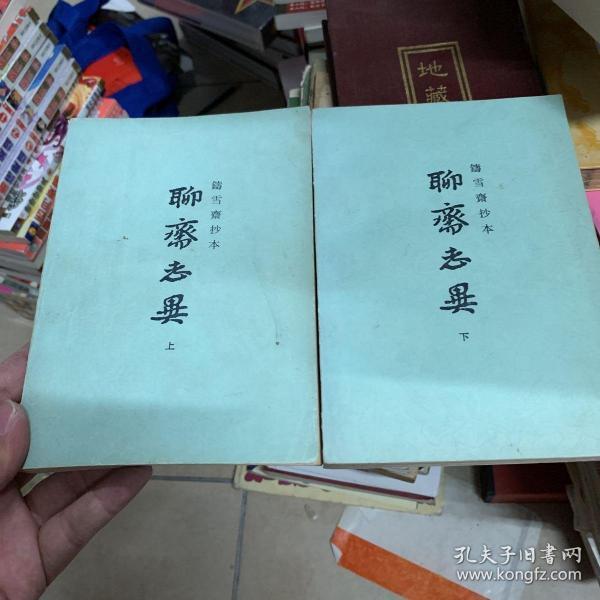 鑄雪齋抄本
聊齋志異
上
鑄雪齋抄本
聊齋志異
下
地藏
孔夫子旧书网
www.kongfz.com